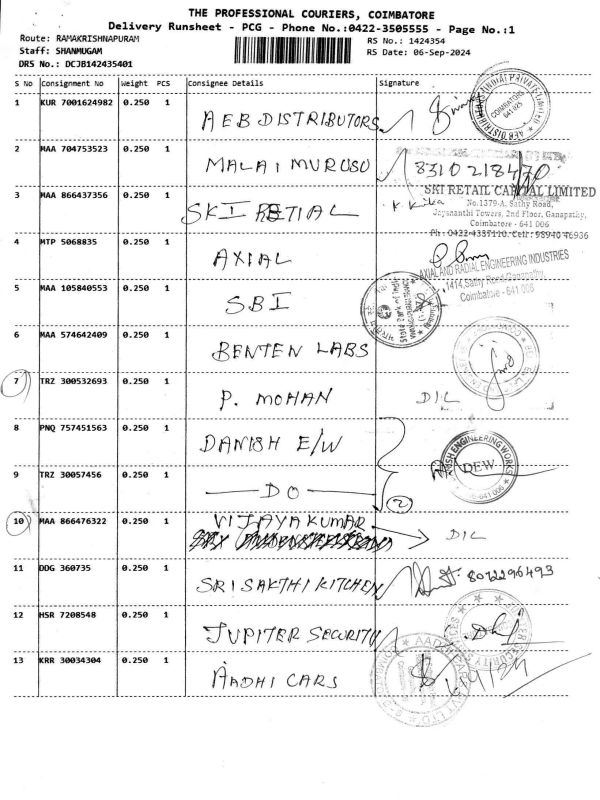 THE PROFESSIONAL COURIERS, COIMBATORE
Delivery Runsheet - PCG - Phone No.:0422-3505555 - Page No.:1
Route: RAMAKRISHNAPURAM
RS No.: 1424354
Staff: SHANMUGAM
RS Date: 06-Sep-2024
DRS No.: DCJB142435401
S No Consignment No Weight PCS Consignee Details Signature
1 KUR 7001624982 0.250 1 AEB DISTRIBUTORS
COIMBATORE
641 025
2 MAA 704753523 0.250 1 MALAI MURUSU 8310218470
SKI RETAIL CAPITAL LIMITED
3 MAA 866437356 0.250 1 SKI RETIAL
No.1379-A, Sathy Road,
Jaysnanthi Towers, 2nd Floor, Ganapathy,
Coimbatore - 641 006
Ph : 0422-4337110. Cell : 98940 46936
4 MTP 5068835 0.250 1 AXIAL
AXIAL AND RADIAL ENGINEERING INDUSTRIES
1414, Sathy Road, Ganapathy,
Coimbatore - 641 006
5 MAA 105840553 0.250 1 SBI
State Bank of India
6 MAA 574642409 0.250 1 BENTEN LABS
7 TRZ 300532693 0.250 1 P. MOHAN DIL
8 PNQ 757451563 0.250 1 DANISH E/W
DANISH ENGINEERING WORKS
DEW
9 TRZ 30057456 0.250 1 DO
2
10 MAA 866476322 0.250 1 VIJAYAKUMAR DIL
11 DDG 360735 0.250 1 SRI SAKTHI KITCHEN 8072296493
12 HSR 7208548 0.250 1 JUPITER SECURITY
13 KRR 30034304 0.250 1 AADHI CARS